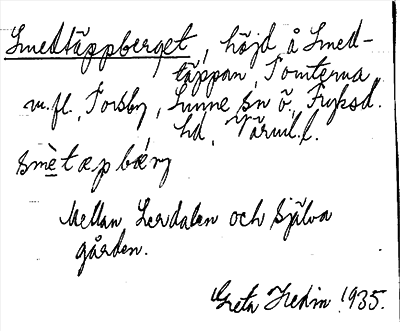 Smedtäppberget, höjd å Smed-
täppan, Tomterna
m.fl., Torsby, Sunne sn Ö., Fryksd.
hd, Värml.l.
smètæpbærj
Mellan Lerdalen och själva
gården.
Greta Hedin 1935.